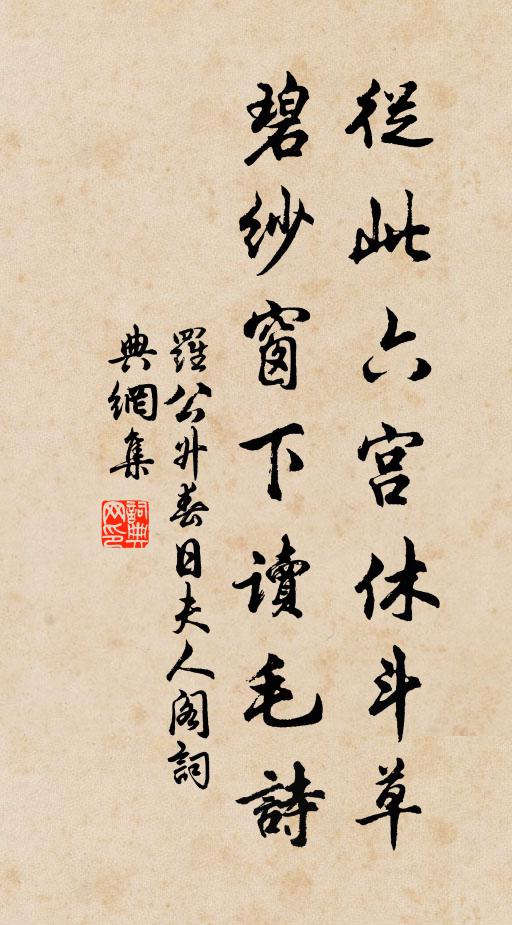 從此六宮休斗草
碧紗窗下讀毛詩
羅公升春日夫人閣詞
典網集
詞典網印